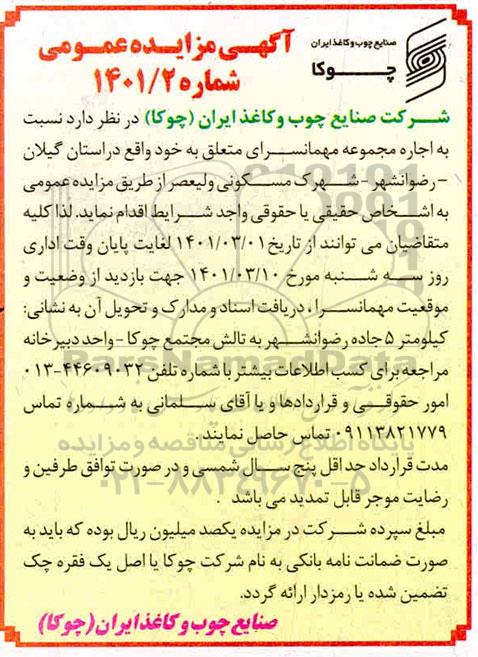 صنایع چوب و کاغذ ایران
چوکا
آگهی مزایده عمومی
شماره ۱۴۰۱/۲
شرکت صنایع چوب وکاغذ ایران (چوکا) در نظر دارد نسبت
به اجاره مجموعه مهمانسرای متعلق به خود واقع دراستان گیلان
-رضوانشهر- شهرک مسکونی ولیعصر از طریق مزایده عمومی
به اشخاص حقیقی یا حقوقی واجد شرایط اقدام نماید. لذا کلیه
متقاضیان می توانند از تاریخ ۱۴۰۱/۰۳/۰۱ لغایت پایان وقت اداری
روز سه شنبه مورخ ۱۴۰۱/۰۳/۱۰ جهت بازدید از وضعیت و
موقعیت مهمانسرا، دریافت اسناد و مدارک و تحویل آن به نشانی:
کیلومتر ۵ جاده رضوانشهر به تالش مجتمع چوکا -واحد دبیرخانه
مراجعه برای کسب اطلاعات بیشتر با شماره تلفن ۴۴۶۰۹۰۳۲-۰۱۳
امور حقوقی و قراردادها و یا آقای سلمانی به شماره تماس
۰۹۱۱۳۸۲۱۷۷۹ تماس حاصل نمایند .
مدت قرارداد حداقل پنج سال شمسی و در صورت توافق طرفین و
رضایت موجر قابل تمدید می باشد .
مبلغ سپرده شرکت در مزایده یکصد میلیون ریال بوده که باید به
صورت ضمانت نامه بانکی به نام شرکت چوکا یا اصل یک فقره چک
تضمین شده یا رمزدار ارائه گردد.
صنایع چوب و کاغذ ایران (چوکا)
ParsNamadData
پایگاه اطلاع رسانی مناقصه و مزایده
۰۲۱-۸۸۳۴۹۶۷۰-۵